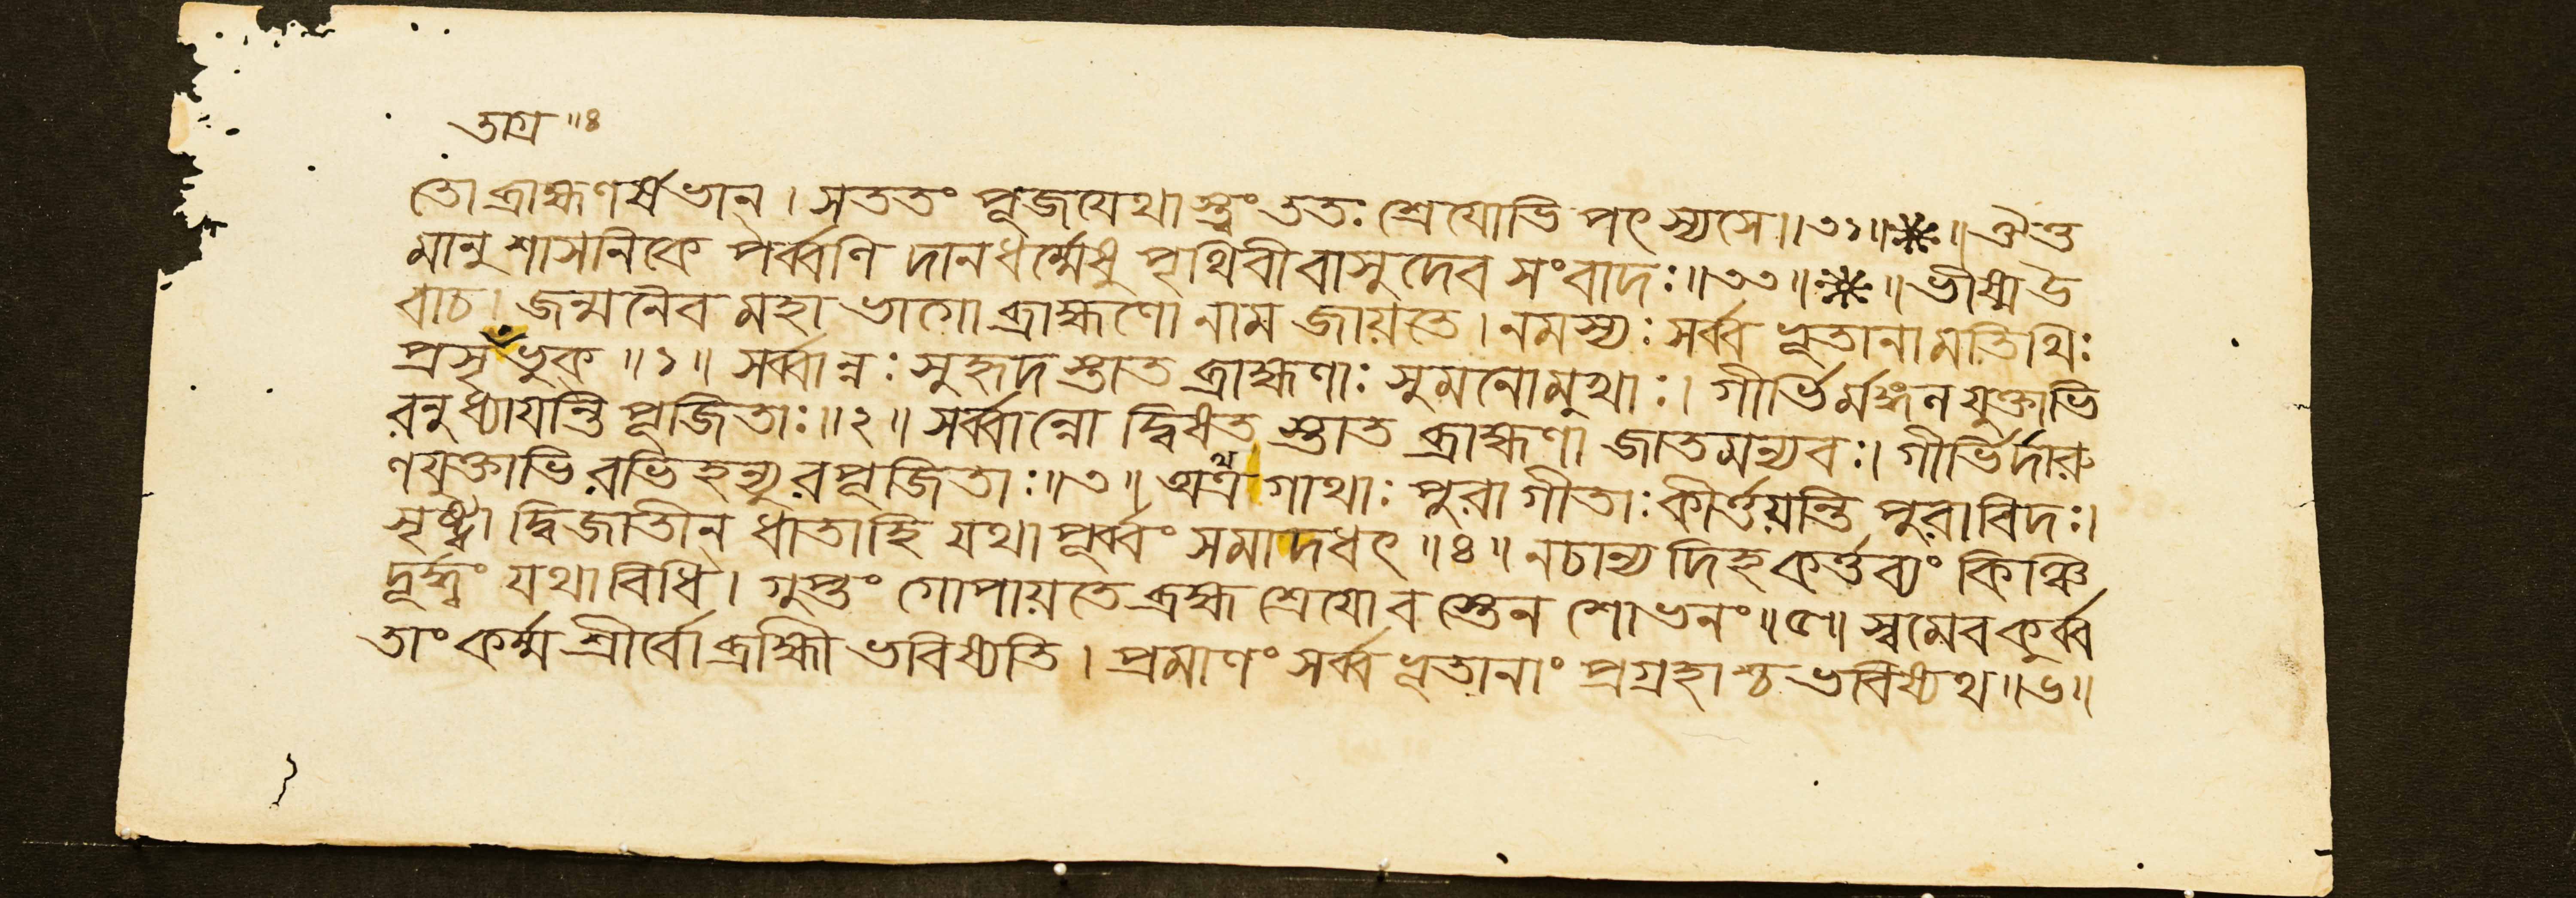 তাগ্র ॥৪
তো ব্রাহ্মণর্ষভান্ । সততং পূজযেথাস্ত্বং ততঃ শ্রেযোভি পৎস্যসে॥৩১॥※॥ ঐত্ত
মানুশাসনিকে পর্ব্বণি দানধর্ম্মেষু পৃথিবীবাসুদেব সংবাদঃ॥৩৩॥※॥ ভীষ্ম উ
বাচ। জন্মনৈব মহা ভাগো ব্রাহ্মণো নাম জায়তে। নমস্যঃ সর্ব্ব ভূতানামতিথিঃ
প্রসৃ ভুক ॥১॥ সর্ব্বান্নঃ সুহৃদস্তাত ব্রাহ্মণাঃ সুমনোমুখাঃ। গীর্ভির্মঙ্গল যুক্তাভি
রনুধ্যাযন্তি পূজিতাঃ॥২॥ সর্ব্বান্নো দ্বিষত স্তাত ব্রাহ্মণা জাতমন্যবঃ। গীর্ভির্দারু
ণযুক্তাভি রভিহন্যুরপূজিতাঃ॥৩॥ অত্র গাথাঃ পুরা গীতাঃ কীর্ত্তয়ন্তি পুরাবিদঃ।
সৃষ্ট্বা দ্বিজাতীন্ ধাতাহি যথা পূর্ব্বং সমাদধৎ ॥৪॥ নচান্য দিহ কর্ত্তব্যং কিঞ্চি
দূর্দ্ধ্বং যথাবিধি। গুপ্তং গোপায়তে ব্রহ্ম শ্রেযোব স্তেন শোভনং॥৫॥ স্বমেব কুর্ব্ব
তাং কর্ম্ম শ্রীর্বো ব্রাহ্মী ভবিষ্যতি। প্রমাণং সর্ব্ব ভূতানাং প্রগ্রহাশ্চ ভবিষ্যথ॥৬॥